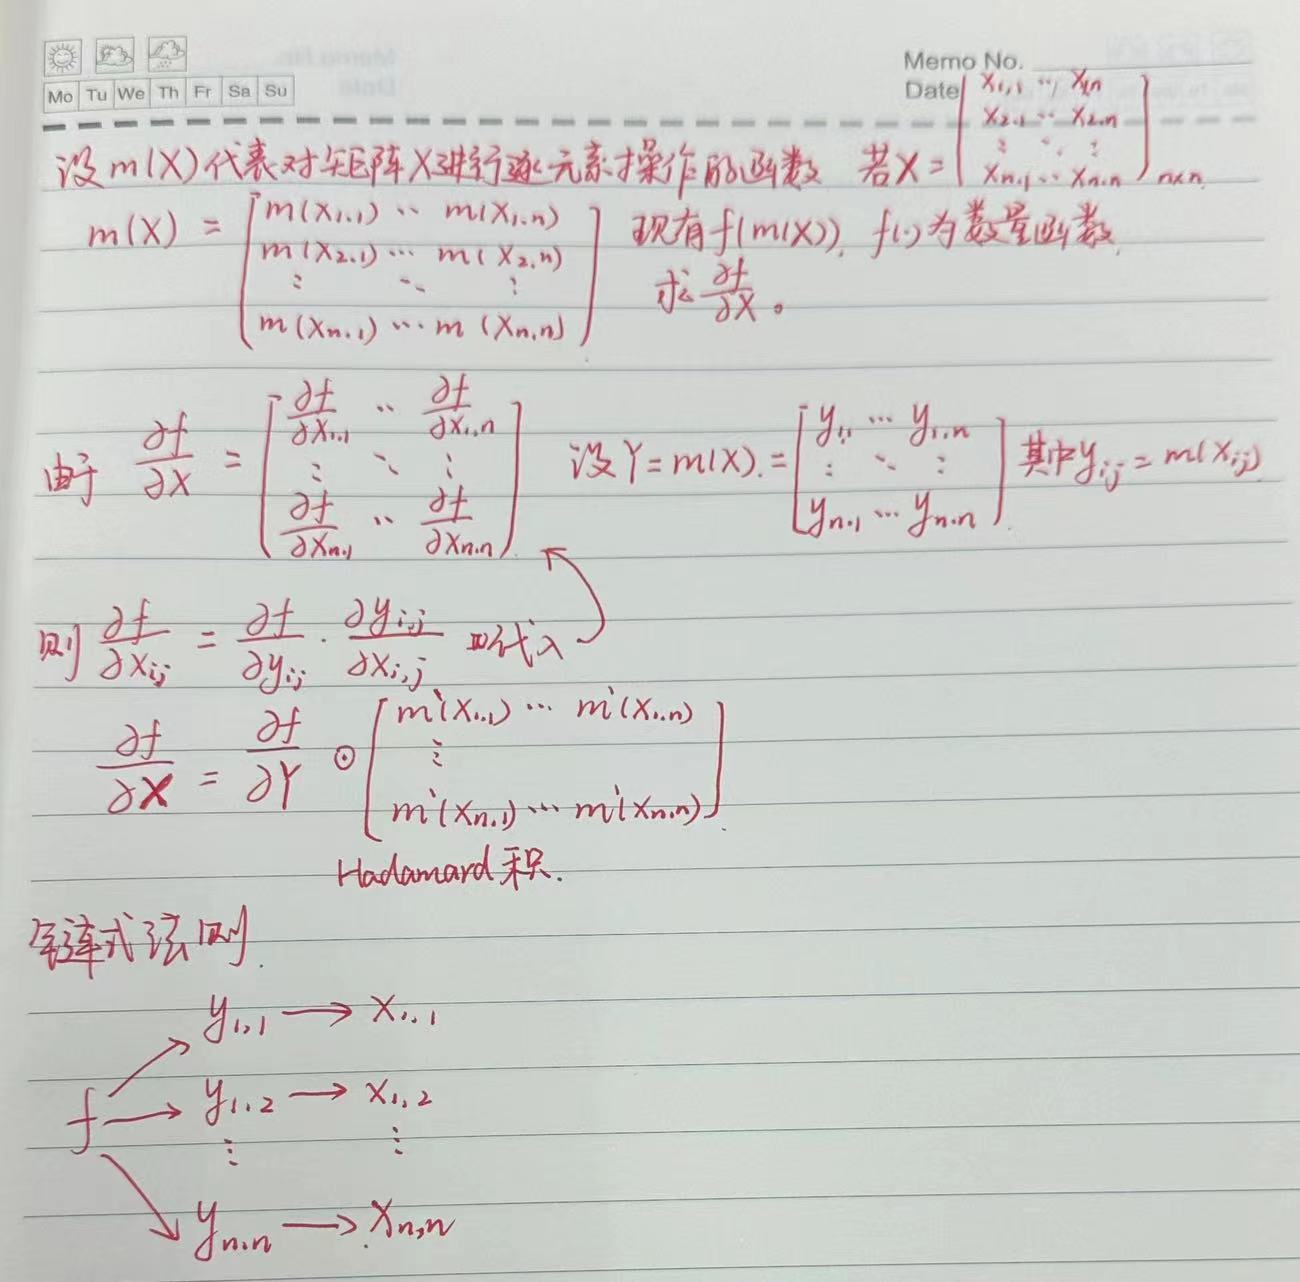 Mo Tu We Th Fr Sa Su
Memo No.
Date
设m(X)代表对矩阵X进行逐元素操作的函数 若X = [x₁,₁ ·· x₁,n ; x₂,₁ ·· x₂,n ; ⋮ ⋱ ⋮ ; xn,₁ ·· xn,n]n×n
m(X) = [m(x₁,₁) ·· m(x₁,n) ; m(x₂,₁) ··· m(x₂,n) ; ⋮ ⋱ ⋮ ; m(xn,₁) ··· m(xn,n)] 现有f(m(X)), f(·)为数量函数,
求 ∂f/∂X 。
由于 ∂f/∂X = [∂f/∂x₁,₁ ·· ∂f/∂x₁,n ; ⋮ ⋱ ⋮ ; ∂f/∂xn,₁ ·· ∂f/∂xn,n] 设Y = m(X) = [y₁,₁ ··· y₁,n ; ⋮ ⋱ ⋮ ; yn,₁ ··· yn,n] 其中yij = m(xij)
则 ∂f/∂xij = ∂f/∂yij · ∂yi,j/∂xi,j 代入
∂f/∂X = ∂f/∂Y ⊙ [m'(x₁,₁) ··· m'(x₁,n) ; ⋮ ; m'(xn,₁) ··· m'(xn,n)]
Hadamard 积.
链式法则
y₁,₁ → x₁,₁
f → y₁,₂ → x₁,₂
⋮ ⋮
yn,n → xn,n